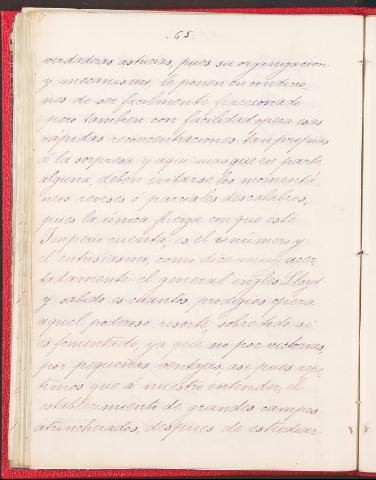 .65.
verdaderas astucias, pues su organizacion
y mecanismo, le ponen en condicio
nes de ser facilmente fraccionado
pero tambien con facilidad opera esas
rápidas reconcentraciones tan propias
á la sorpresa y aqui mas que en parte
alguna, deben evitarse los momentá
neos reveses ó parciales descalabros,
pues la única fuerza con que este
Imperio cuenta, es el número y
el entusiasmo, como dice muy acer-
tadamente el general inglés Lloyt
y sabido es cuantos prodigios opera
aquel poderoso resorte, sobre todo si
es fomentado, ya que no por victorias,
por pequeñas ventajas, asi pues repe-
timos que á nuestro entender, el
establecimiento de grandes campos
atrincherados, despues de estudiar